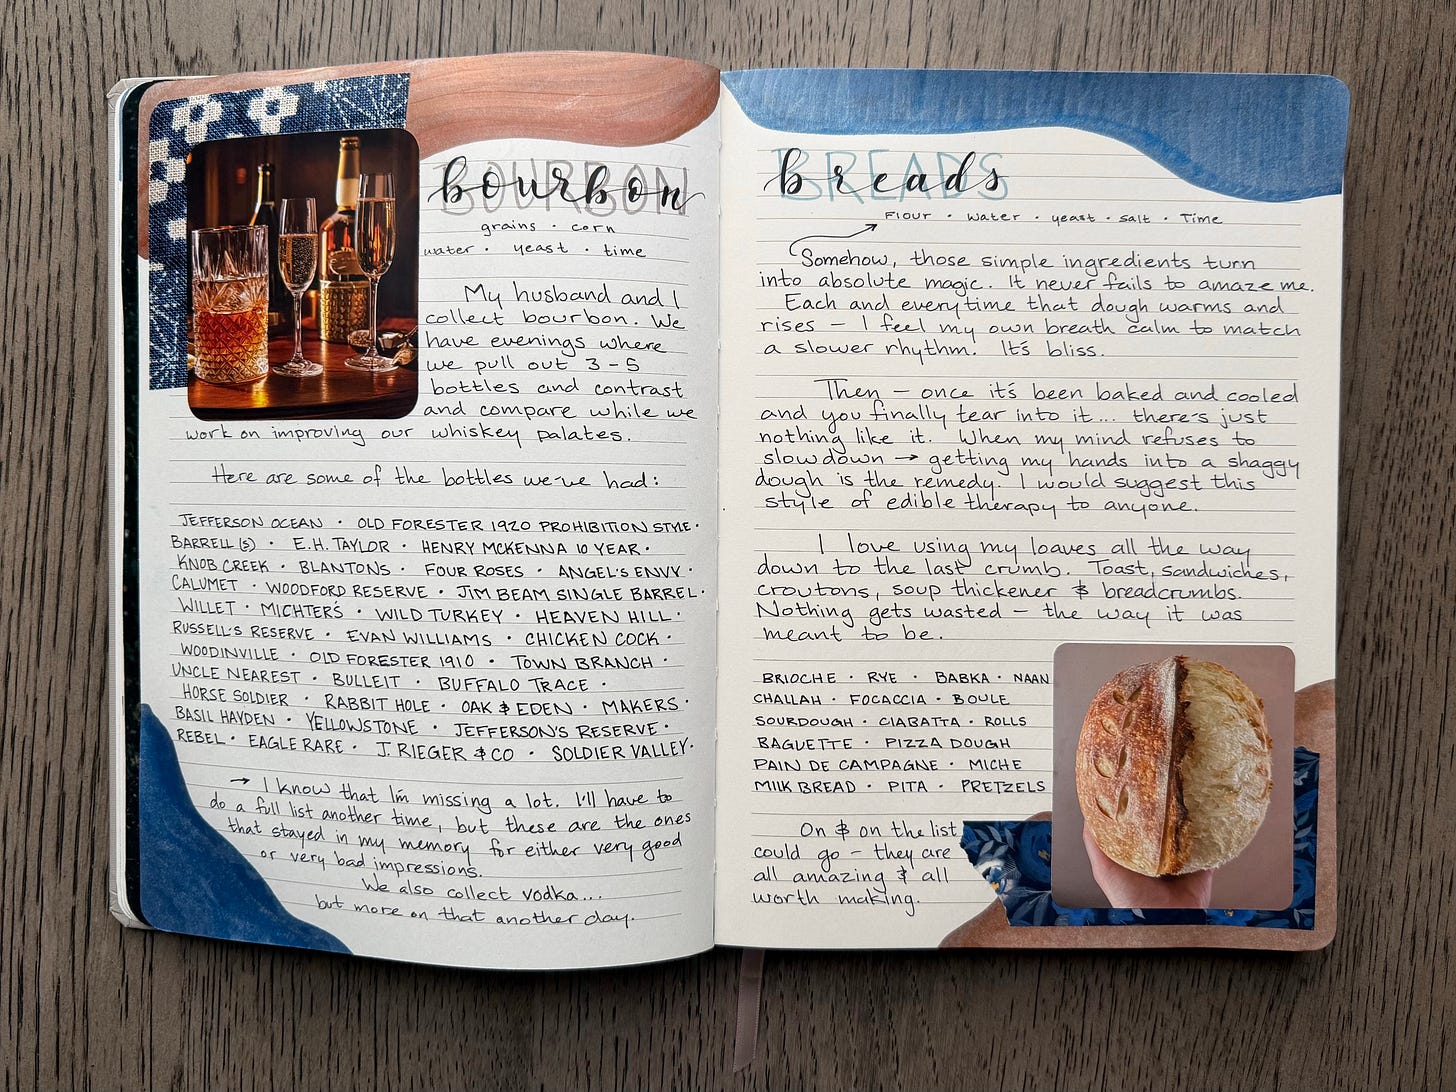 bourbon
BOURBON
grains · corn
water · yeast · time
My husband and I
collect bourbon. We
have evenings where
we pull out 3-5
bottles and contrast
and compare while we
work on improving our whiskey palates.
Here are some of the bottles we've had:
JEFFERSON OCEAN · OLD FORESTER 1920 PROHIBITION STYLE ·
BARRELL (S) · E.H. TAYLOR · HENRY MCKENNA 10 YEAR ·
KNOB CREEK · BLANTONS · FOUR ROSES · ANGEL'S ENVY ·
CALUMET · WOODFORD RESERVE · JIM BEAM SINGLE BARREL ·
WILLET · MICHTER'S · WILD TURKEY · HEAVEN HILL ·
RUSSELL'S RESERVE · EVAN WILLIAMS · CHICKEN COCK ·
WOODINVILLE · OLD FORESTER 1910 · TOWN BRANCH ·
UNCLE NEAREST · BULLEIT · BUFFALO TRACE ·
HORSE SOLDIER · RABBIT HOLE · OAK & EDEN · MAKERS ·
BASIL HAYDEN · YELLOWSTONE · JEFFERSON'S RESERVE ·
REBEL · EAGLE RARE · J. RIEGER & CO · SOLDIER VALLEY ·
→ I know that I'm missing a lot. I'll have to
do a full list another time, but these are the ones
that stayed in my memory for either very good
or very bad impressions.
We also collect vodka...
but more on that another day.
breads
BREADS
Flour · water · yeast · salt · Time
Somehow, those simple ingredients turn
into absolute magic. It never fails to amaze me.
Each and everytime that dough warms and
rises – I feel my own breath calm to match
a slower rhythm. It's bliss.
Then – once it's been baked and cooled
and you finally tear into it... there's just
nothing like it. When my mind refuses to
slow down → getting my hands into a shaggy
dough is the remedy. I would suggest this
style of edible therapy to anyone.
I love using my loaves all the way
down to the last crumb. Toast, sandwiches,
croutons, soup thickener & breadcrumbs.
Nothing gets wasted – the way it was
meant to be.
BRIOCHE · RYE · BABKA · NAAN
CHALLAH · FOCACCIA · BOULE
SOURDOUGH · CIABATTA · ROLLS
BAGUETTE · PIZZA DOUGH
PAIN DE CAMPAGNE · MICHE
MILK BREAD · PITA · PRETZELS
On & on the list
could go – they are
all amazing & all
worth making.